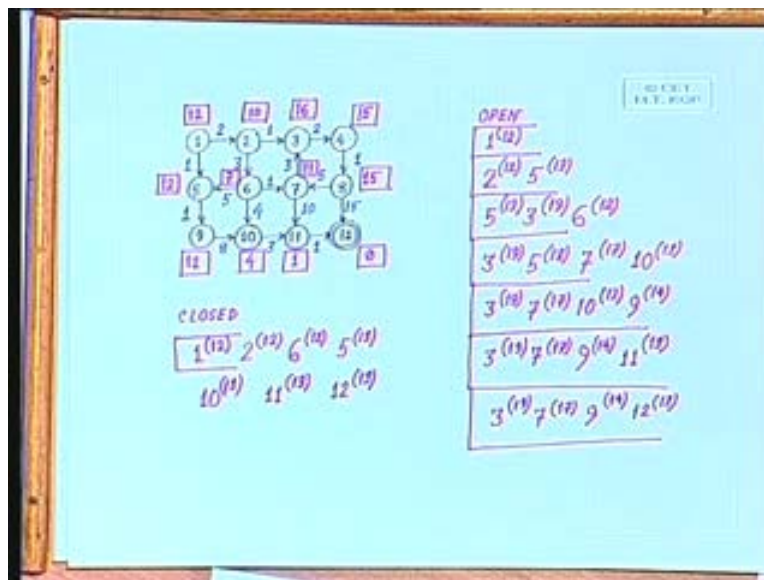 © CET
I.I.T. KGP
12 10 16 15
1 2 2 1 3 2 4
1 3 3 1
12 5 7 6 1 7 11 5 8 15
5
1 4 10 15
9 8 10 2 11 1 12
11 4 1 0
CLOSED
1(12) 2(12) 6(12) 5(13)
10(13) 11(13) 12(13)
OPEN
1(12)
2(12) 5(13)
5(13) 3(19) 6(12)
3(19) 5(13) 7(17) 10(13)
3(19) 7(17) 10(13) 9(14)
3(19) 7(17) 9(14) 11(13)
3(19) 7(17) 9(14) 12(13)